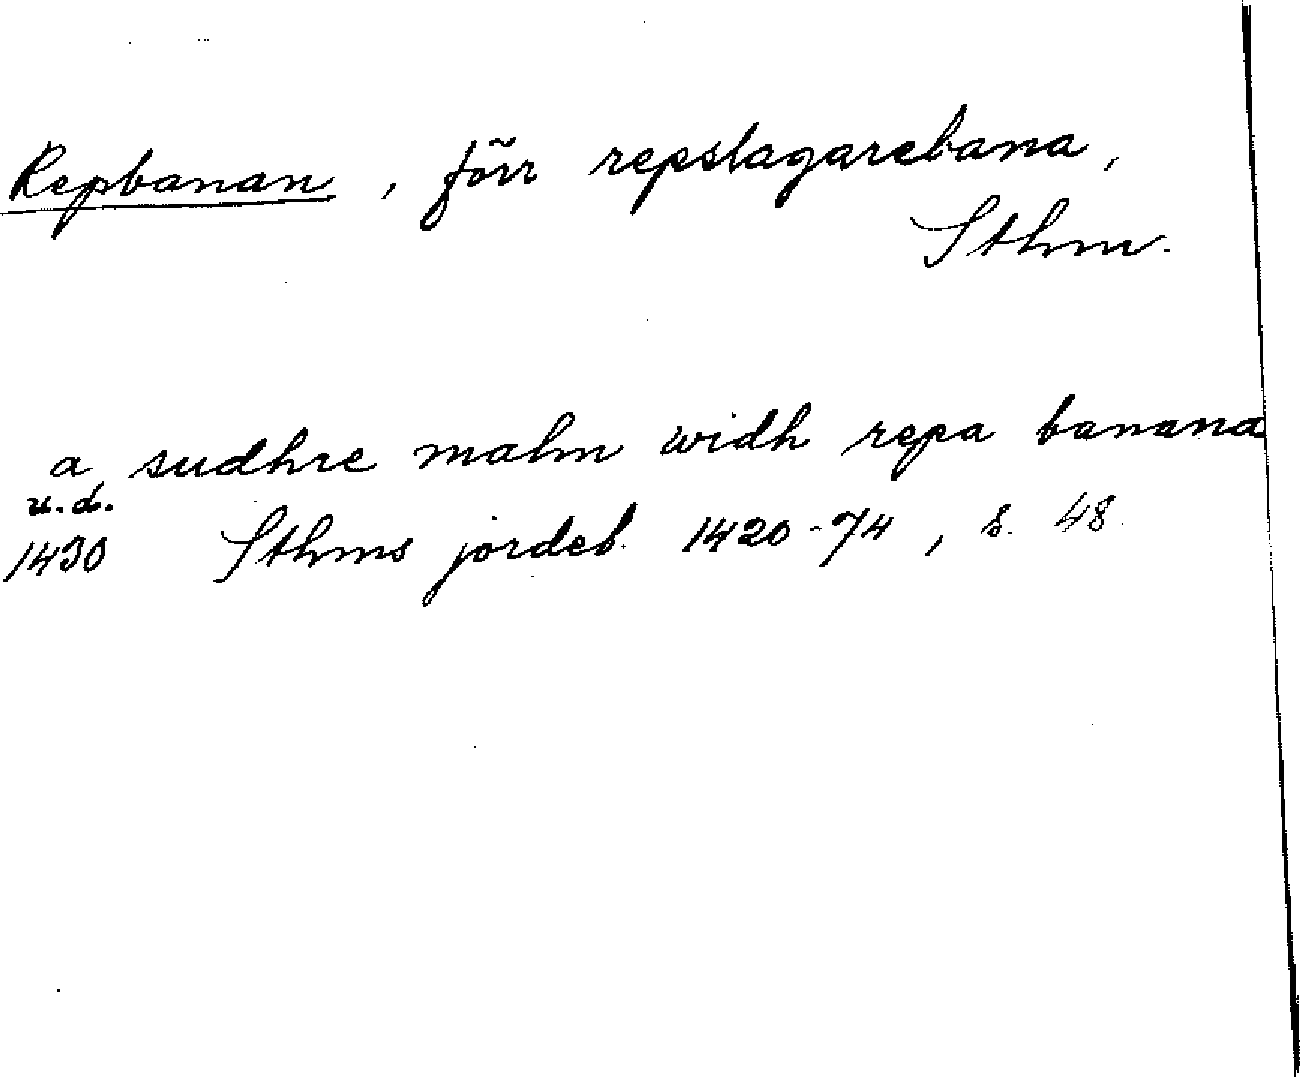 Repbanan, förr repslagarebana,
Sthm.
a sudhre malm widh repa banana
u.d.
1430 Sthms jordeb. 1420-74, s. 48.